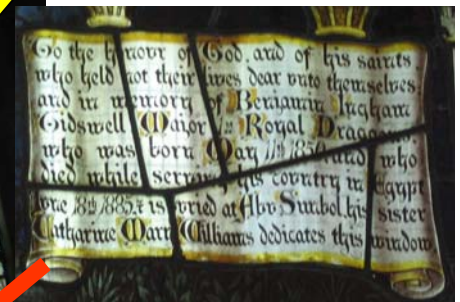 To the honour of God, and of his saints
who held not their lives dear unto themselves
and in memory of Benjamin Ingham
Gidswell Major 1st Royal Dragoons
who was born May 11th 1850 and who
died while serving his country in Egypt
June 18th 1885 & is buried at Abu Simbel his sister
Catharine Mary Williams dedicates this window